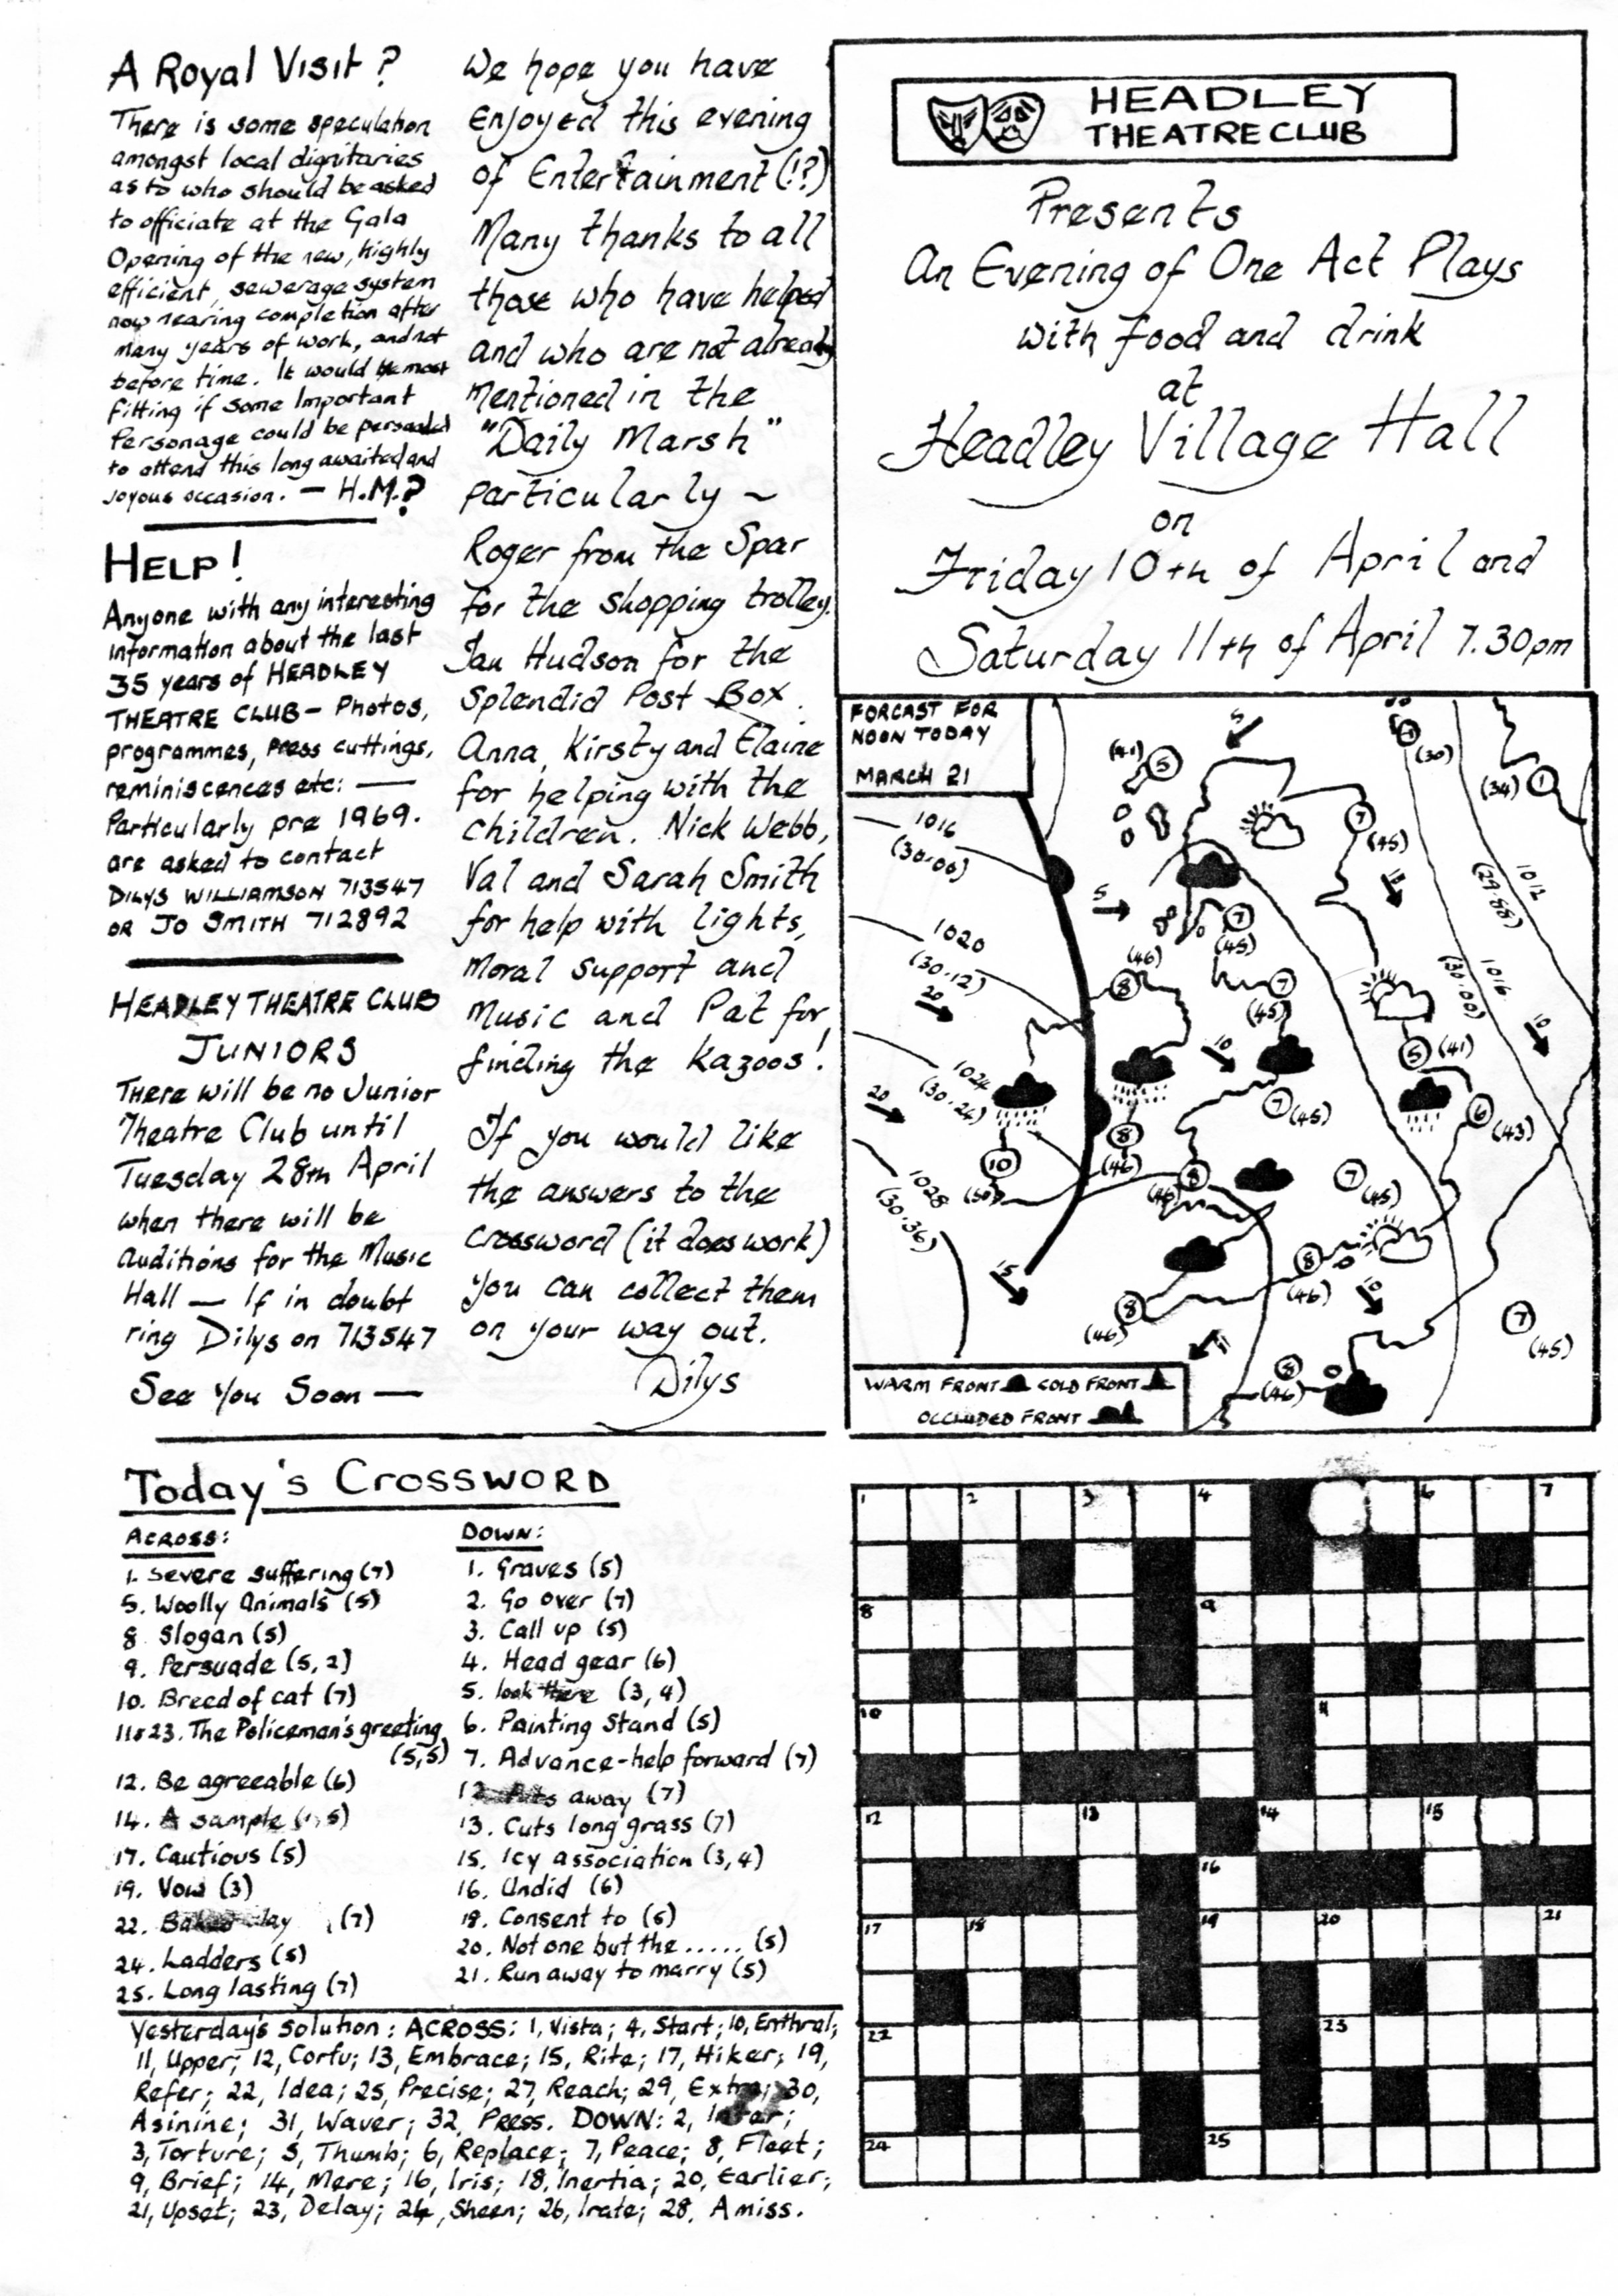 A Royal Visit?
There is some speculation
amongst local dignitaries
as to who should be asked
to officiate at the Gala
Opening of the new, highly
efficient, sewerage system
now nearing completion after
many years of work, and not
before time. It would be most
fitting if some Important
Personage could be persuaded
to attend this long awaited and
joyous occasion. — H.M.?
HELP!
Anyone with any interesting
information about the last
35 years of HEADLEY
THEATRE CLUB - Photos,
programmes, press cuttings,
reminiscences etc: —
Particularly pre 1969.
are asked to contact
DILYS WILLIAMSON 713547
OR JO SMITH 712892
HEADLEY THEATRE CLUB
JUNIORS
There will be no Junior
Theatre Club until
Tuesday 28th April
when there will be
auditions for the Music
Hall — If in doubt
ring Dilys on 713547
See You Soon —
We hope you have
Enjoyed this evening
of Entertainment (!?)
Many thanks to all
those who have helped
and who are not already
mentioned in the
"Daily Marsh"
particularly ~
Roger from the Spar
for the shopping trolley.
Jan Hudson for the
Splendid Post Box.
Anna, Kirsty and Elaine
for helping with the
children. Nick Webb,
Val and Sarah Smith
for help with lights,
moral support and
Music and Pat for
finding the Kazoos!
If you would like
the answers to the
crossword (it does work)
you can collect them
on your way out.
Dilys
HEADLEY
THEATRE CLUB
Presents
An Evening of One Act Plays
with food and drink
at
Headley Village Hall
on
Friday 10th of April and
Saturday 11th of April 7.30pm
FORCAST FOR
NOON TODAY
MARCH 21
5
(41) 5
(30)
(34) 1
7
(45)
1016
(30.00)
1012
(29.88)
5
7
(45)
1020
(30.12)
(46)
8
7
(45)
1016
(30.00)
20
10
5 (41)
10
1024
(30.24)
20
7 (45)
6 (43)
8
(46)
10
(50)
8
(46)
7
(45)
1028
(30.36)
15
8
(46)
10
8
(46)
7
(45)
8
(46)
WARM FRONT COLD FRONT
OCCLUDED FRONT
Today's Crossword
ACROSS:
1. Severe suffering (7)
5. Woolly Animals (5)
8. Slogan (5)
9. Persuade (5,2)
10. Breed of cat (7)
11 & 23. The Policeman's greeting
(5,5)
12. Be agreeable (6)
14. A sample (1,5)
17. Cautious (5)
19. Vow (3)
22. Baked clay (7)
24. Ladders (5)
25. Long lasting (7)
DOWN:
1. Graves (5)
2. Go over (7)
3. Call up (5)
4. Head gear (6)
5. look there (3,4)
6. Painting Stand (5)
7. Advance-help forward (7)
12. Puts away (7)
13. Cuts long grass (7)
15. Icy association (3,4)
16. Undid (6)
18. Consent to (5)
20. Not one but the ..... (5)
21. Run away to marry (5)
Yesterday's Solution: ACROSS: 1, Vista; 4, Start; 10, Enthral;
11, Upper; 12, Corfu; 13, Embrace; 15, Rite; 17, Hiker; 19,
Refer; 22, Idea; 25, Precise; 27, Reach; 29, Extra; 30,
Asinine; 31, Waver; 32, Press. DOWN: 2, Inter;
3, Torture; 5, Thumb; 6, Replace; 7, Peace; 8, Fleet;
9, Brief; 14, Mere; 16, Iris; 18, Inertia; 20, Earlier;
21, Upset; 23, Delay; 24, Sheen; 26, Irate; 28, Amiss.
1 2 3 4 6 7
8 9
10 11
12 13 14 15
16
17 18 19 20 21
22 23
24 25